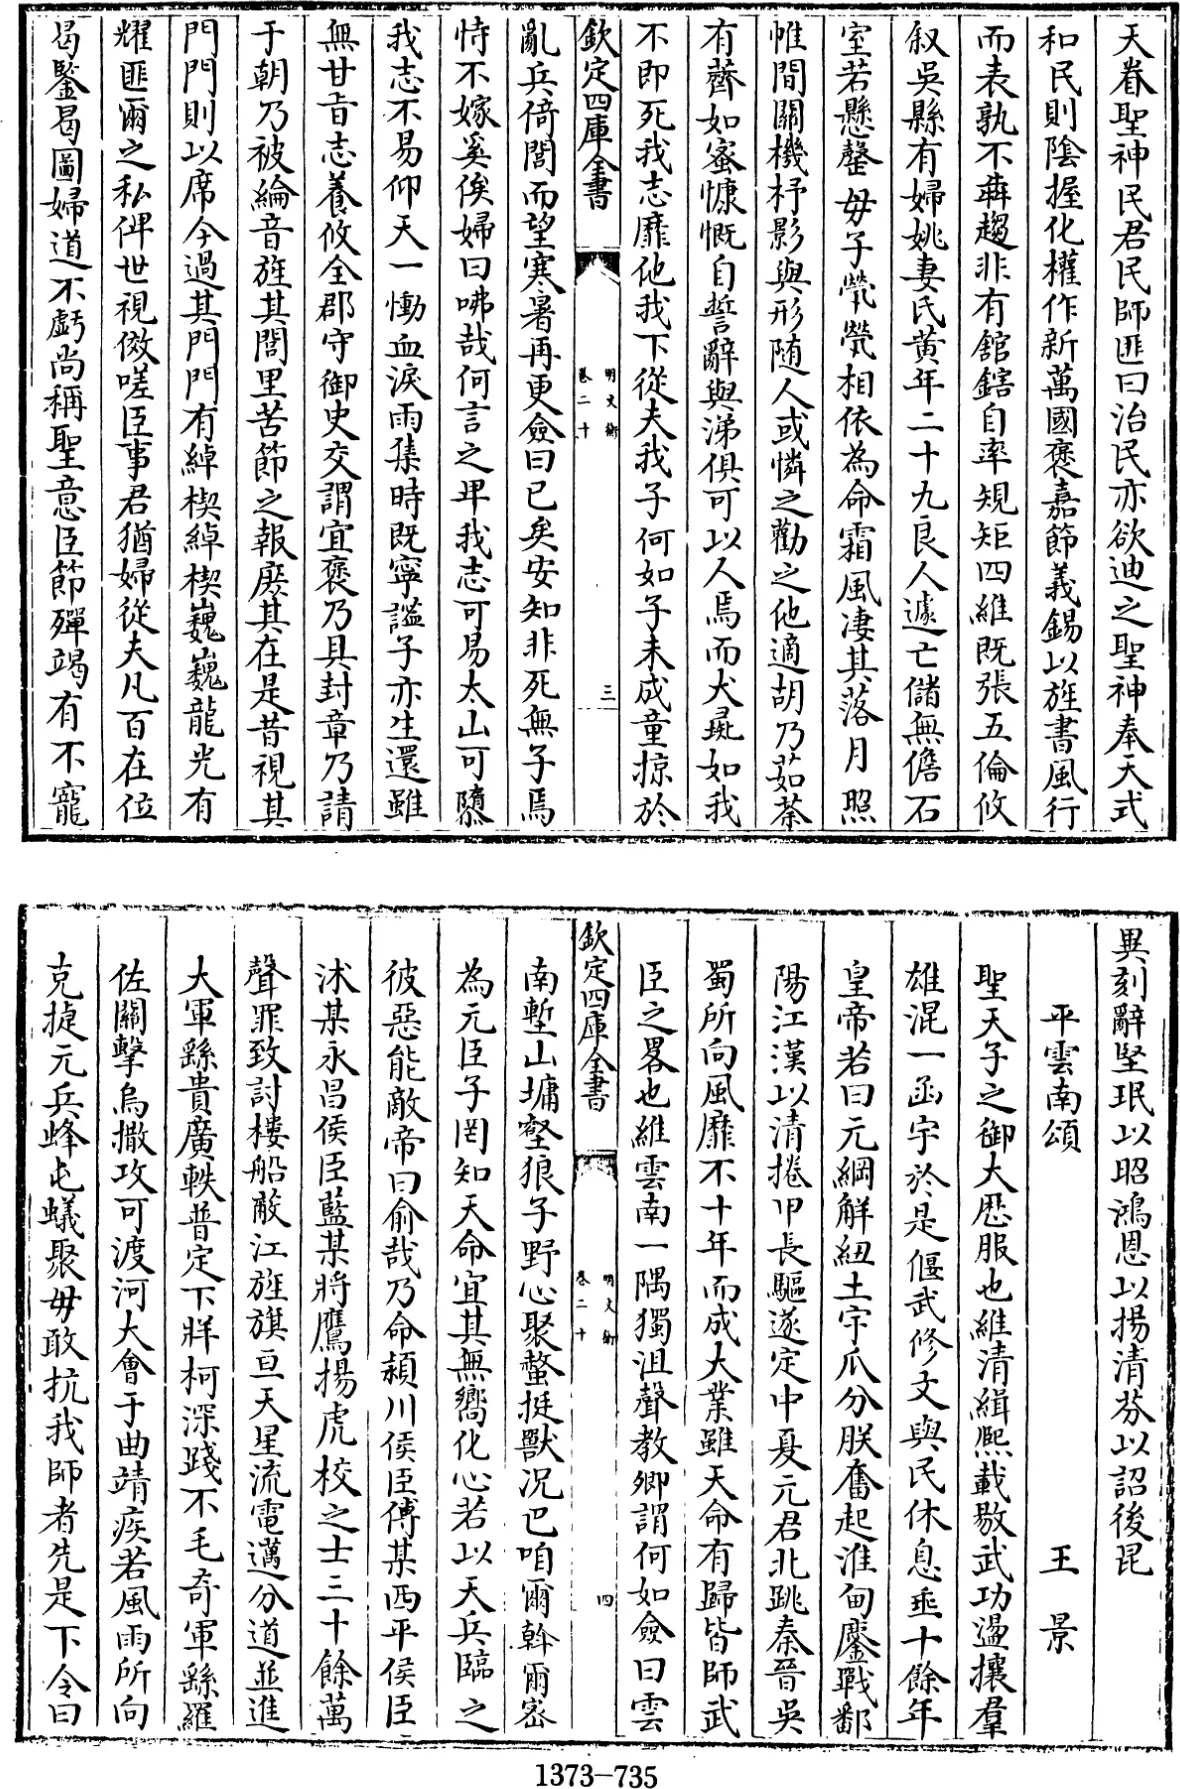 天眷聖神民君民師匪曰治民亦欲迪之聖神奉天式
和民則陰握化權作新萬國褒嘉節義錫以旌書風行
而表孰不犇趨非有舘鎋自率規矩四維既張五倫攸
叙吳縣有婦姚妻氏黄年二十九良人遽亡儲無儋石
室若懸罄毋子煢煢相依為命霜風凄其落月照
帷間關機杼影與形随人或憐之勸之他適胡乃茹荼
有薺如蜜慷慨自誓辭與涕俱可以人焉而犬彘如我
不即死我志靡他我下從夫我子何如子未成童掠於
欽定四庫全書
明文衡
卷二十
三
亂兵倚閭而望寒暑再更僉曰已矣安知非死無子焉
恃不嫁奚俟婦曰咈哉何言之卑我志可易太山可隳
我志不易仰天一慟血淚雨集時既寧謐子亦生還雖
無甘旨志養攸全郡守御史交謂宜褒乃具封章乃請
于朝乃被綸音旌其閭里苦節之報庶其在是昔視其
門門則以席今過其門門有綽楔綽楔巍巍龍光有
耀匪爾之私俾世視傚嗟臣事君猶婦從夫凡百在位
曷鑒曷圖婦道不虧尚稱聖意臣節殫竭有不寵
異刻辭堅珉以昭鴻恩以揚清芬以詔後昆
平雲南頌 王景
聖天子之御大厯服也維清緝熈載敭武功盪攘羣
雄混一函宇於是偃武修文與民休息垂十餘年
皇帝若曰元綱解紐土宇爪分朕奮起淮甸鏖戰鄱
陽江漢以清捲甲長驅遂定中夏元君北跳秦晉吳
蜀所向風靡不十年而成大業雖天命有歸皆師武
臣之畧也維雲南一隅獨沮聲教卿謂何如僉曰雲
欽定四庫全書
明文衡
卷二十
四
南塹山墉壑狼子野心聚螫挻獸况巴咱爾斡爾宻
為元臣子罔知天命宜其無嚮化心若以天兵臨之
彼惡能敵帝曰俞哉乃命潁川侯臣傅某西平侯臣
沐某永昌侯臣藍某將鷹揚虎校之士三十餘萬
聲罪致討樓船蔽江旌旗亘天星流電邁分道並進
大軍繇貴廣軼普定下牂柯深踐不毛奇軍繇羅
佐關擊烏撒攻可渡河大會于曲靖疾若風雨所向
克捷元兵蜂屯蟻聚毋敢抗我師者先是下令曰
1373-735